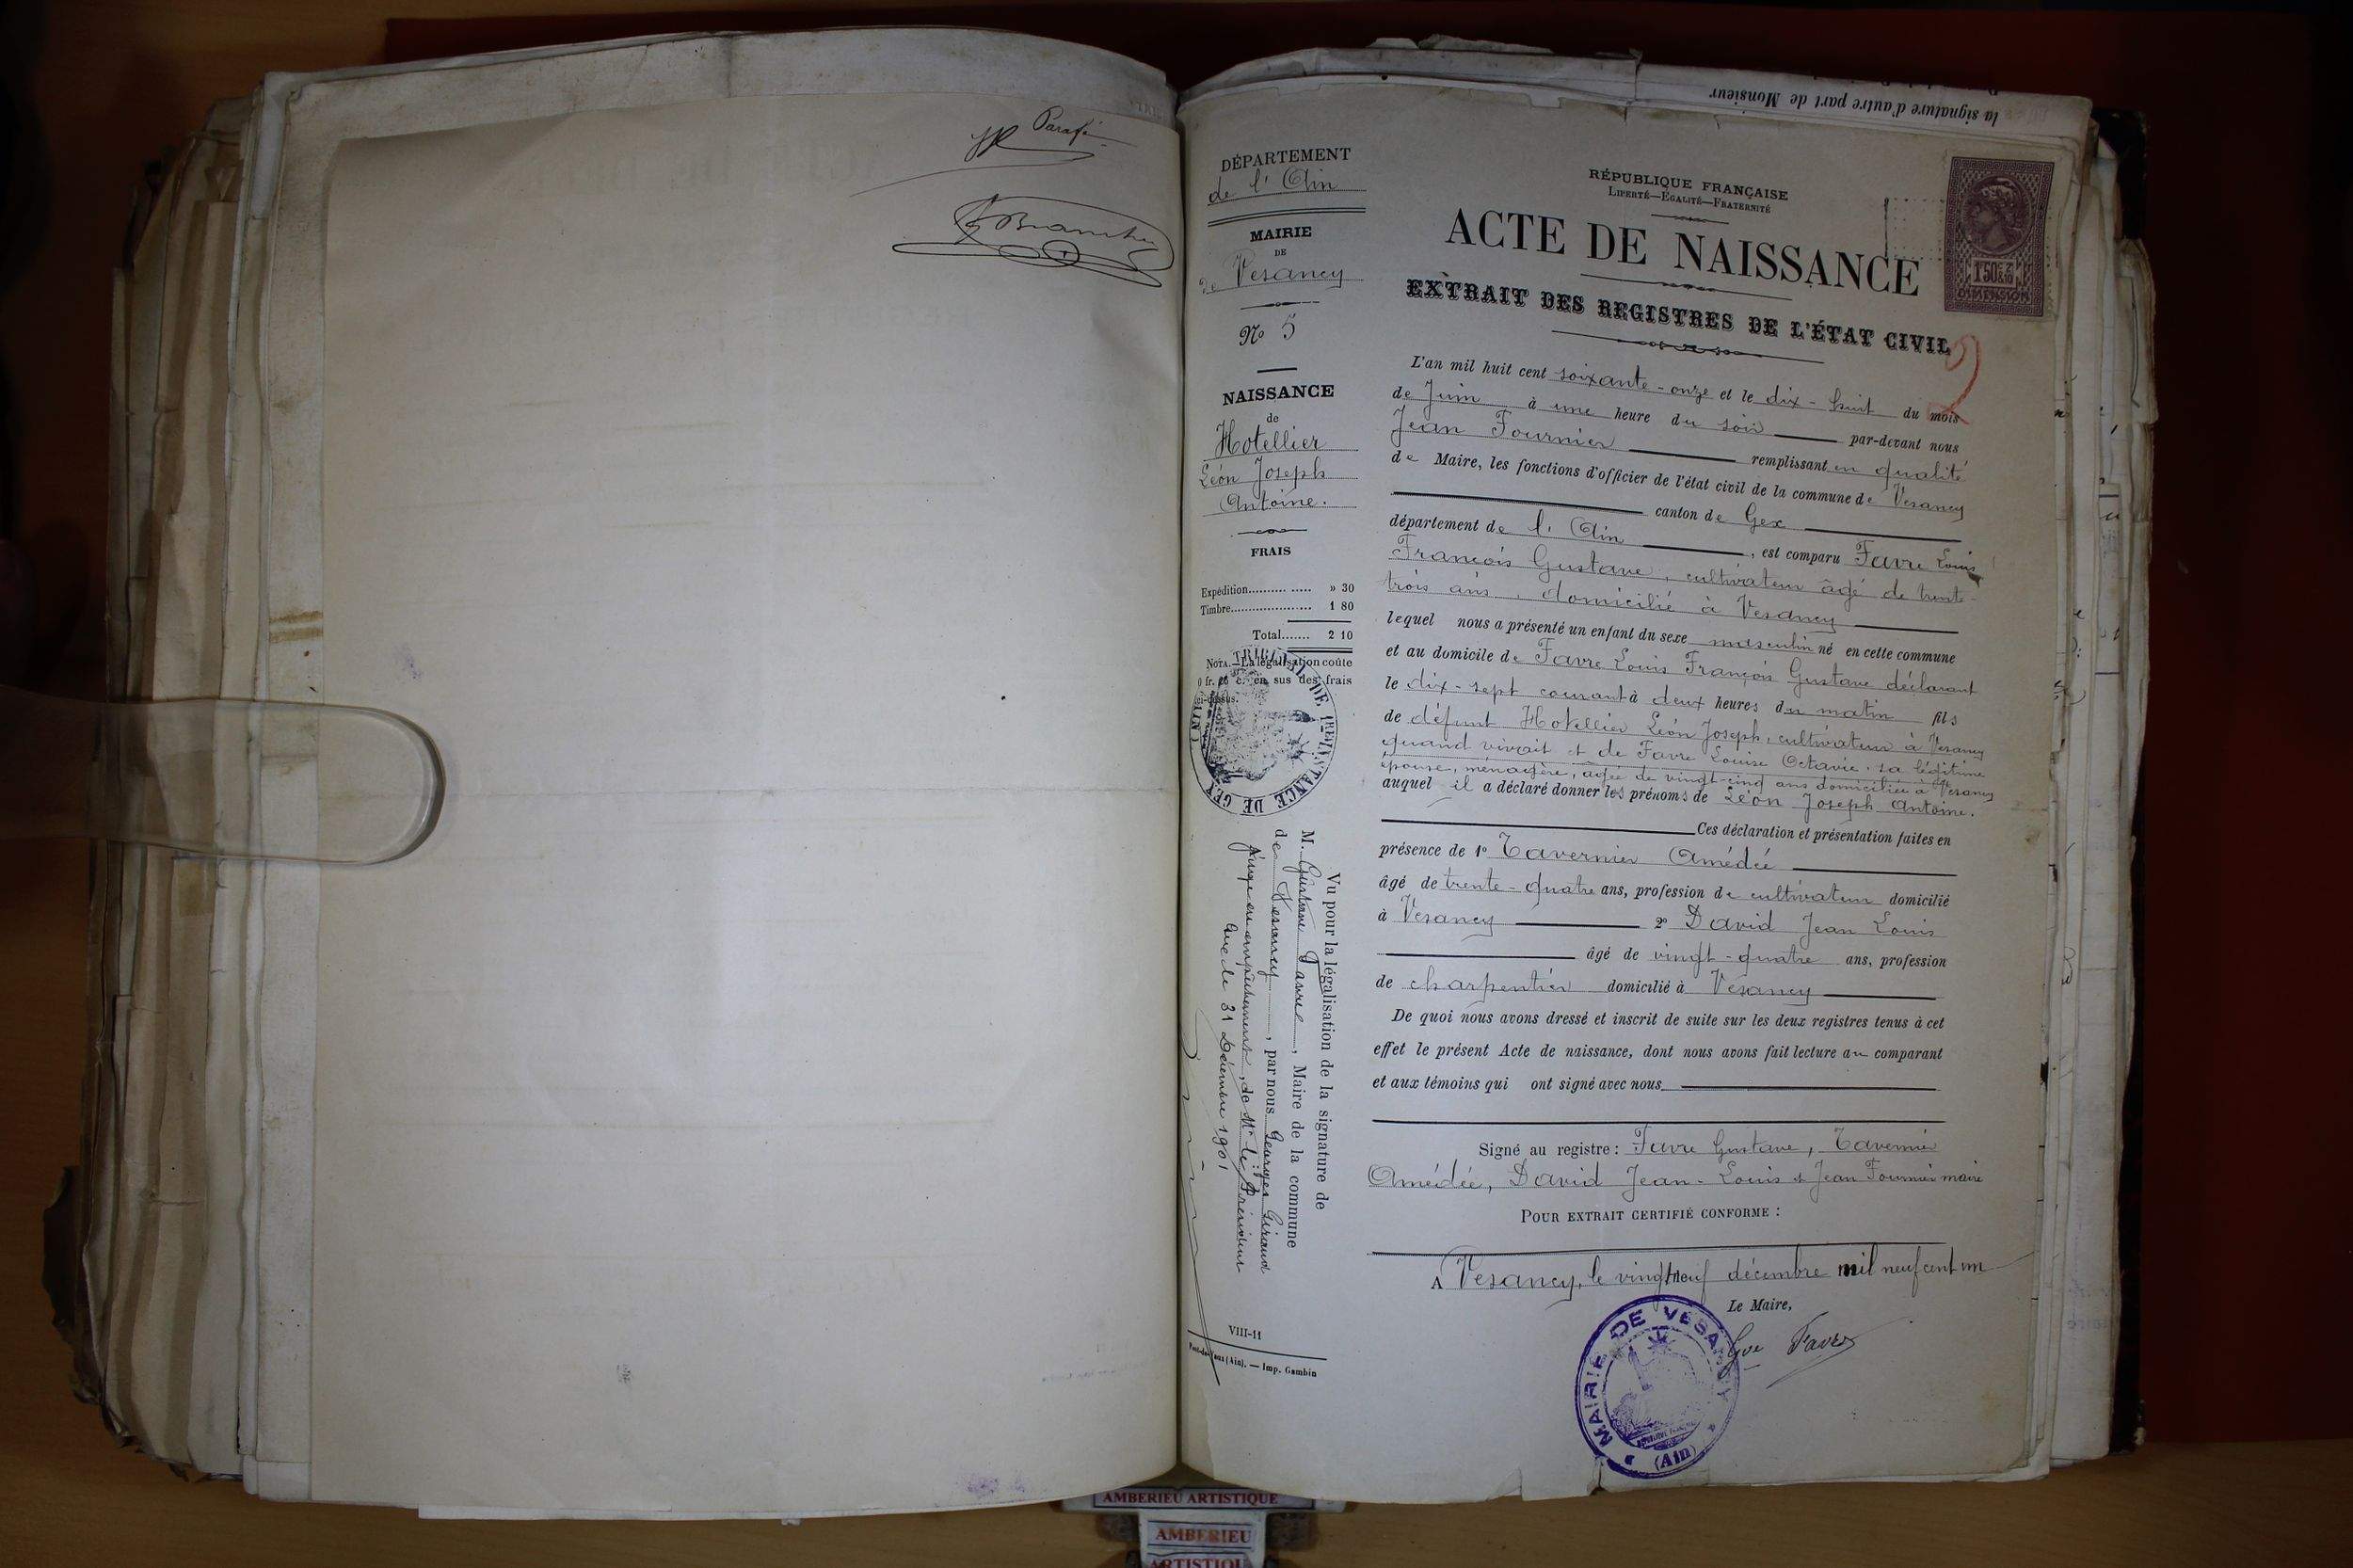 Parafé
la signature d'autre part de Monsieur
DÉPARTEMENT
de l'Ain
MAIRIE
DE
de Vesancy
No 5
NAISSANCE
de
Hotellier
Léon Joseph
Antoine.
FRAIS
Expédition............ » 30
Timbre................ 1 80
Total....... 2 10
NOTA.—La légalisation coûte
0 fr. c. en sus des frais
ci-dessus.
TRIBUNAL DE 1RE INSTANCE DE GEX (AIN)
Vu pour la légalisation de la signature de
M. Gustave Favre, Maire de la commune
de Vesancy, par nous Georges Giraud
juge en empêchement de Mr le Président
Gex le 31 Décembre 1901
VIII-11
Pont-de-Vaux (Ain). — Imp. Gambin
RÉPUBLIQUE FRANÇAISE
LIBERTÉ—ÉGALITÉ—FRATERNITÉ
ACTE DE NAISSANCE
EXTRAIT DES REGISTRES DE L'ÉTAT CIVIL
1f50c
DIMENSION
2
L'an mil huit cent soixante-onze et le dix-huit du mois
de Juin à une heure du soir par-devant nous
Jean Fournier remplissant en qualité
de Maire, les fonctions d'officier de l'état civil de la commune de Vesancy
canton de Gex
département de l'Ain, est comparu Favre Louis
François Gustave, cultivateur âgé de trente-
trois ans, domicilié à Vesancy
lequel nous a présenté un enfant du sexe masculin né en cette commune
et au domicile de Favre Louis François Gustave déclarant
le dix-sept courant à deux heures du matin fils
de défunt Hotellier Léon Joseph, cultivateur à Vesancy
quand vivait et de Favre Louise Octavie, sa légitime
épouse, ménagère, âgée de vingt-cinq ans domiciliée à Vesancy
auquel il a déclaré donner les prénoms de Léon Joseph Antoine.
Ces déclaration et présentation faites en
présence de 1o Tavernier Amédée
âgé de trente-quatre ans, profession de cultivateur domicilié
à Vesancy 2o David Jean Louis
âgé de vingt-quatre ans, profession
de charpentier domicilié à Vesancy
De quoi nous avons dressé et inscrit de suite sur les deux registres tenus à cet
effet le présent Acte de naissance, dont nous avons fait lecture au comparant
et aux témoins qui ont signé avec nous
Signé au registre: Favre Gustave, Tavernier
Amédée, David Jean-Louis et Jean Fournier maire
POUR EXTRAIT CERTIFIÉ CONFORME :
A Vesancy, le vingt neuf décembre mil neuf cent un
Le Maire,
Gve Favre
MAIRIE DE VESANCY
(Ain)
AMBERIEU ARTISTIQUE
AMBERIEU
ARTISTIQUE